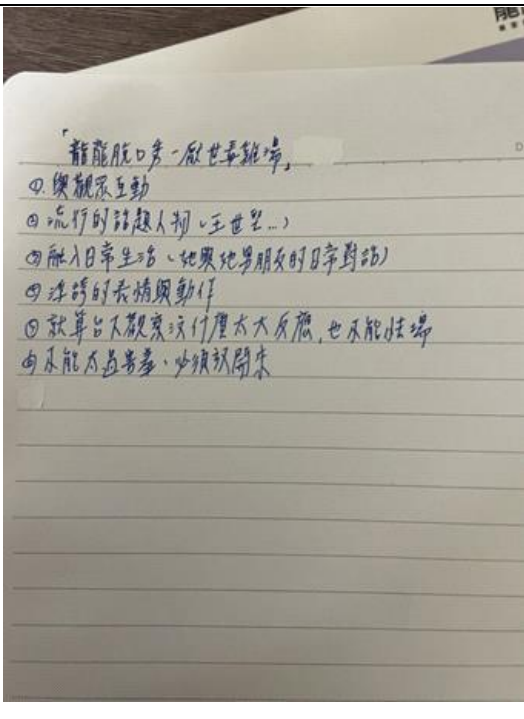 「龍龍脫口秀-厭世毒雞湯」
①.與觀眾互動
②流行的話題人物(王世堅...)
③融入日常生活(她與她男朋友的日常對話)
④浮誇的表情與動作
⑤就算台下觀眾沒什麼太大反應,也不能怯場
⑥不能太過害羞、必須放開來